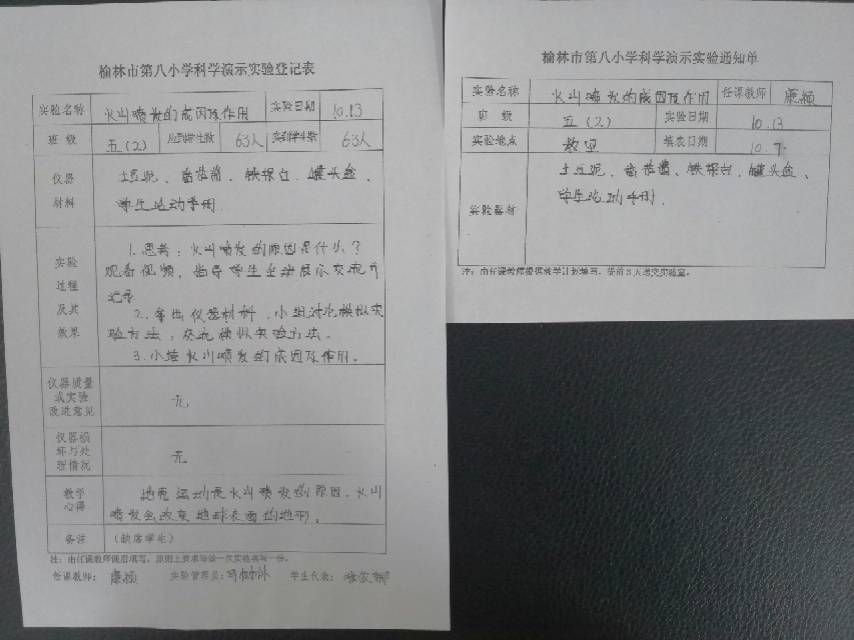 榆林市第八小学科学演示实验登记表
实验名称 火山喷发的成因及作用 实验日期 10.13
班 级 五(2) 应到学生数 63人 实到学生数 63人
仪器 土豆泥、番茄酱、铁架台、罐头盒、
材料 学生活动手册
实验 1.思考:火山喷发的原因是什么?
过程 观看视频,指导学生全班展示交流并
及其 记录
效果 2.拿出仪器材料,小组讨论模拟实
验方法,交流模拟实验方法。
3.小结火山喷发的成因及作用。
仪器质量
或实验 无
改进意见
仪器损
坏与处 无
理情况
教学 地壳运动是火山喷发的原因,火山
心得 喷发会改变地球表面的地形。
备注 (缺席学生)
注:由任课教师课后填写,原则上要求每做一次实验填写一份。
任课教师: 康颖 实验管理员: 学生代表:
榆林市第八小学科学演示实验通知单
实验名称 火山喷发的成因及作用 任课教师 康颖
班 级 五(2) 实验日期 10.13
实验地点 教室 填表日期 10.9.
实验器材 土豆泥、番茄酱、铁架台、罐头盒、
学生活动手册.
注:由任课教师根据教学计划填写,提前3天递交实验室。